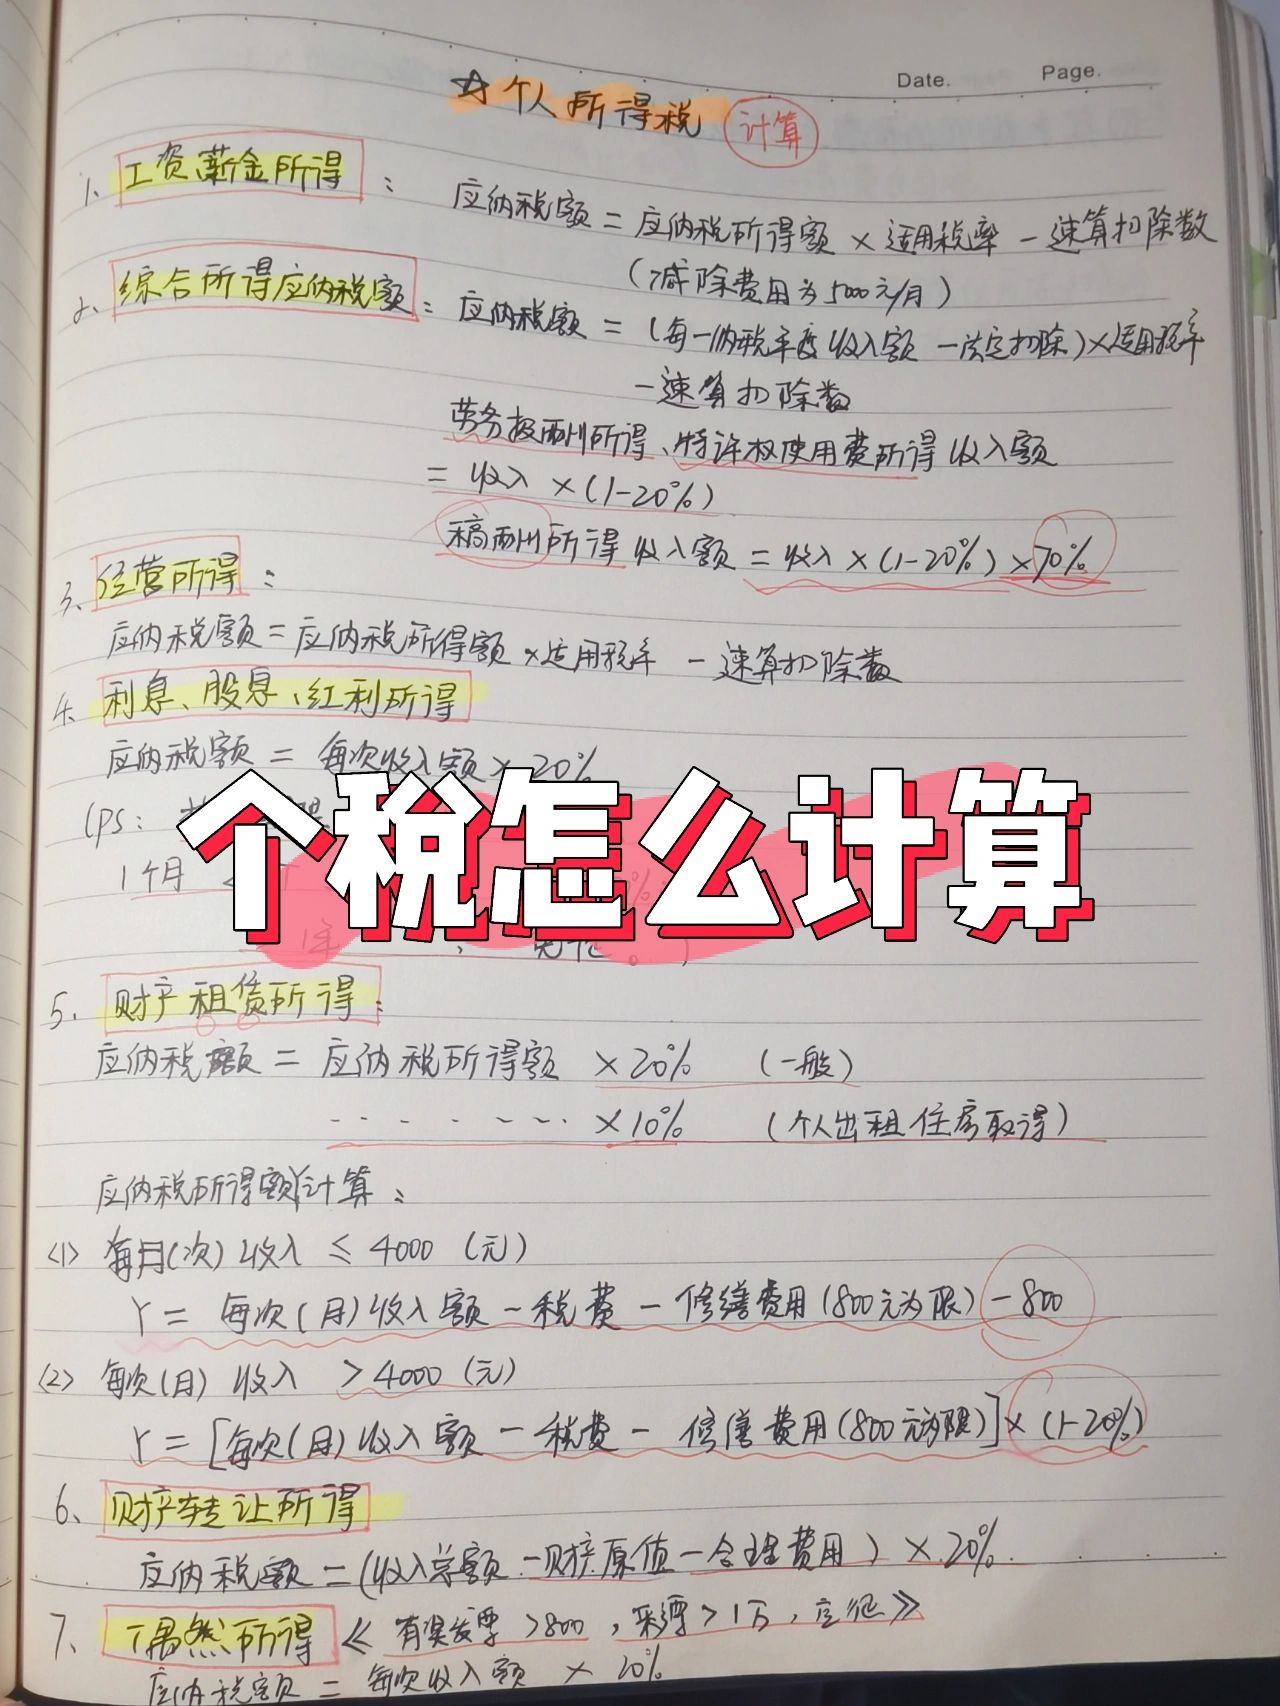 Date.
Page.
☆个人所得税 计算
1、工资、薪金所得：应纳税额＝应纳税所得额×适用税率－速算扣除数
（减除费用为5000元/月）
2、综合所得应纳税额：应纳税额＝（每一纳税年度收入额－法定扣除）×适用税率
－速算扣除数
劳务报酬所得、特许权使用费所得收入额
＝收入×（1-20%）
稿酬所得收入额＝收入×（1-20%）×70%
3、经营所得：
应纳税额＝应纳税所得额×适用税率－速算扣除数
4、利息、股息、红利所得
应纳税额＝每次收入额×20%
(ps：
个税怎么计算
1个月
5、财产租赁所得：
应纳税额＝应纳税所得额×20%（一般）
×10%（个人出租住房取得）
应纳税所得额Y计算：
<1> 每月(次)收入≤4000（元）
Y＝每次(月)收入额－税费－修缮费用(800元为限)－800
<2> 每次(月)收入＞4000（元）
Y＝[每次(月)收入额－税费－修缮费用(800元为限)]×(1-20%)
6、财产转让所得
应纳税额＝(收入总额－财产原值－合理费用）×20%
7、偶然所得《有奖发票>800，彩票>1万，应征》
应纳税额＝每次收入额×20%